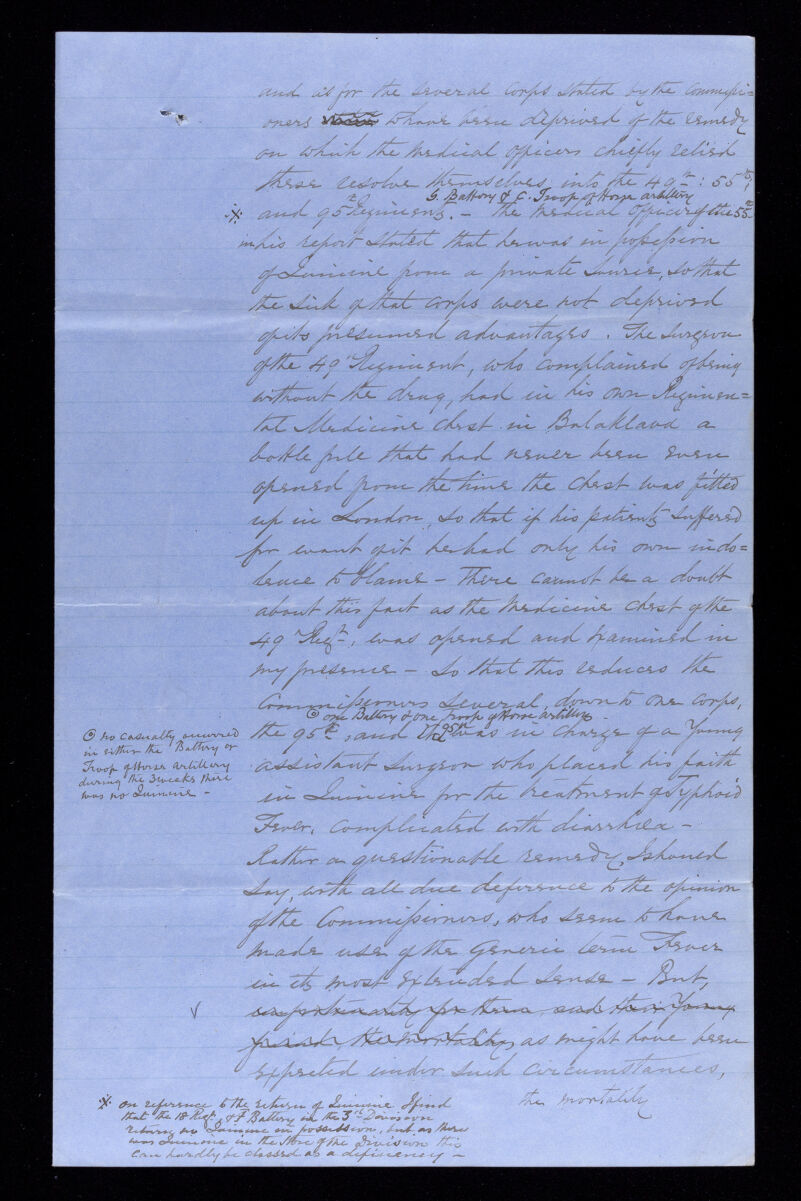 and as for the several Corps stated by the Commissi=
oners to have been deprived of the remedy
on which the Medical officers chiefly relied
these resolve themselves into the 49th: 55th,
G. Battery & C. Troop of Horse artillery
and 95th Regiments. - The Medical Officer of the 55th
in his report stated that he was in possession
of Quinine from a private source, so that
the sick of that corps were not deprived
of its presumed advantages. The Surgeon
of the 49th Regiment, who complained of being
without the drug, had in his own Regimen=
tal Medicine Chest in Balaklava a
bottle full that had never been even
opened from the time the Chest was fitted
up in London, so that if his patients suffered
for want of it he had only his own indo=
lence to blame - There cannot be a doubt
about this fact as the Medicine Chest of the
49 Regt. was opened and examined in
my presence - So that this reduces the
Commissioners several, down to one corps,
one Battery & one troop of Horse artillery.
the 95th, and the 95th was in charge of a Young
assistant Surgeon who placed his faith
in Quinine for the treatment of Typhoid
Fever, complicated with diarrhœa -
Rather a questionable remedy, I should
say, with all due deference to the opinion
of the Commissioners, who seem to have
made use of the Generic term Fever
in its most extended sense - But,
unfortunately for them, and their Young
friend, the mortality, as might have been
expected under such circumstances,
the mortality
no casualty occurred
in either the Battery or
Troop of Horse artillery
during the 3 weeks there
was no Quinine -
on reference to the return of Quinine I find
that the 18 Regt. & F Battery in the 3rd Division
return no Quinine in possession, but as there
was Quinine in the Store of the Division this
can hardly be classed as a deficiency -